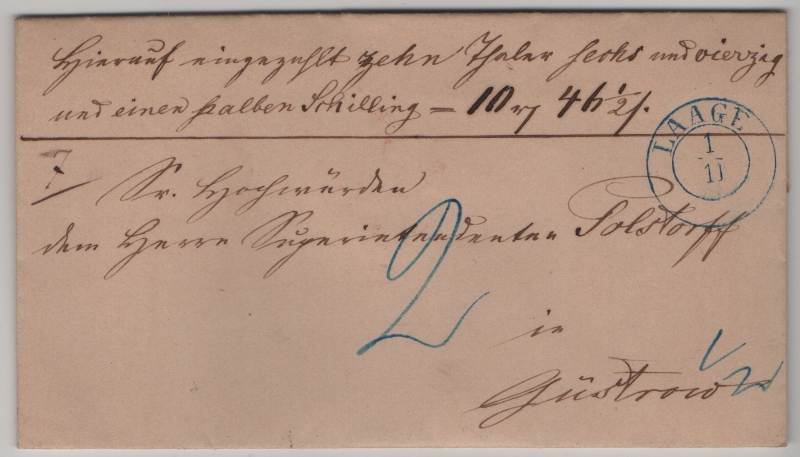 Hierauf eingezahlt zehn Thaler sechs und vierzig
und einen halben Schilling = 10 rț 46 1/2 ſ.
LAAGE
1
11
7
Sr. Hochwürden
dem Herrn Superintendenten Polstorff
2
in
Güstrow